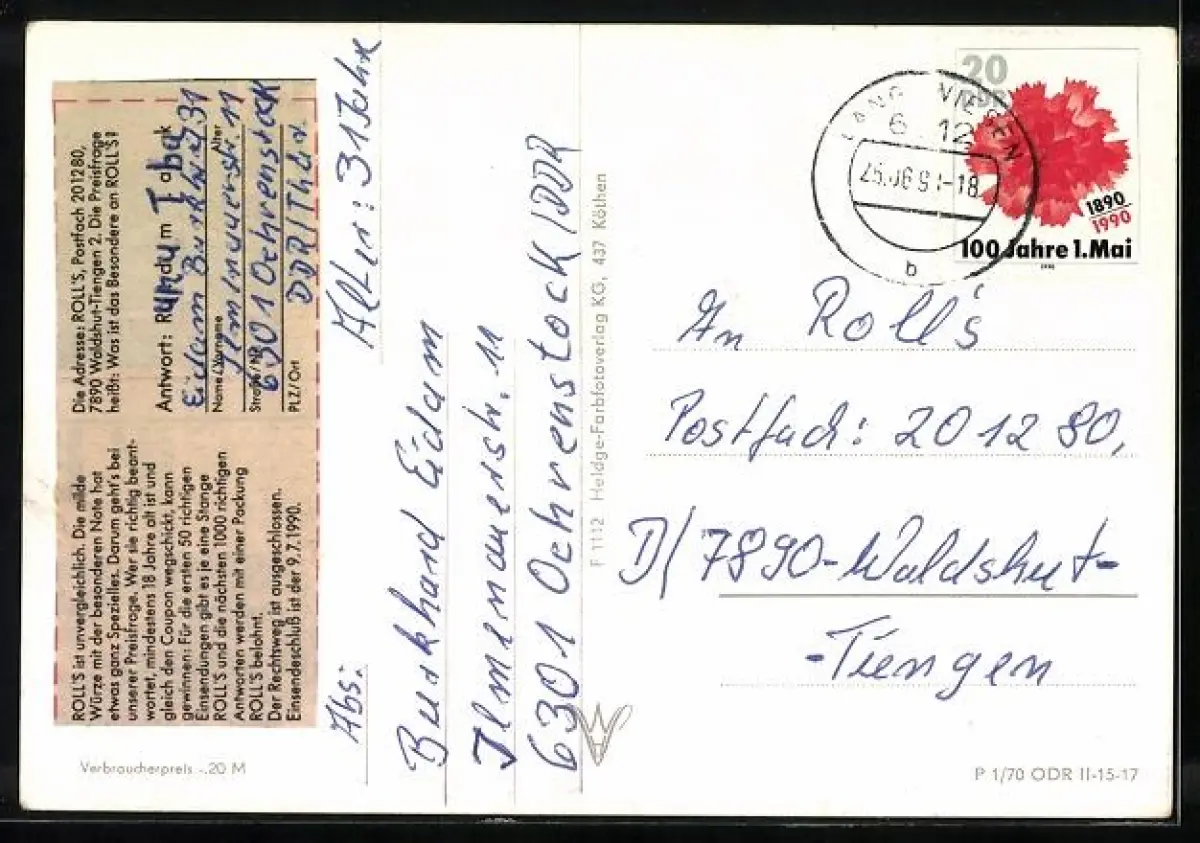 ROLL'S ist unvergleichlich. Die milde
Würze mit der besonderen Note hat
etwas ganz Spezielles. Darum geht's bei
unserer Preisfrage. Wer sie richtig beant-
wortet, mindestens 18 Jahre alt ist und
gleich den Coupon wegschickt, kann
gewinnen: Für die ersten 50 richtigen
Einsendungen gibt es je eine Stange
ROLL'S und die nächsten 1000 richtigen
Antworten werden mit einer Packung
ROLL'S belohnt.
Der Rechtsweg ist ausgeschlossen.
Einsendeschluß ist der 9.7.1990.
Die Adresse: ROLL'S, Postfach 201280,
7890 Waldshut-Tiengen 2. Die Preisfrage
heißt: Was ist das Besondere an ROLL'S?
Antwort: Rundum Tabak
Eidam Burkhard 31
Name/Vorname Alter
Ilmenauerstr. 11
Straße/Nr.
6301 Oehrenstock
DDR/Thür.
PLZ/Ort
Alter: 31 Jahre
Abs:
Burkhard Eidam
Ilmenauerstr. 11
6301 Oehrenstock/DDR
Verbraucherpreis -.20 M
F 1112 Heldge-Farbfotoverlag KG, 437 Köthen
20
DDR
1890
1990
100 Jahre 1. Mai
LANG VIESEN
6 12
b
An Roll's
Postfach: 201280,
D/7890-Waldshut-
-Tiengen
P 1/70 ODR II-15-17